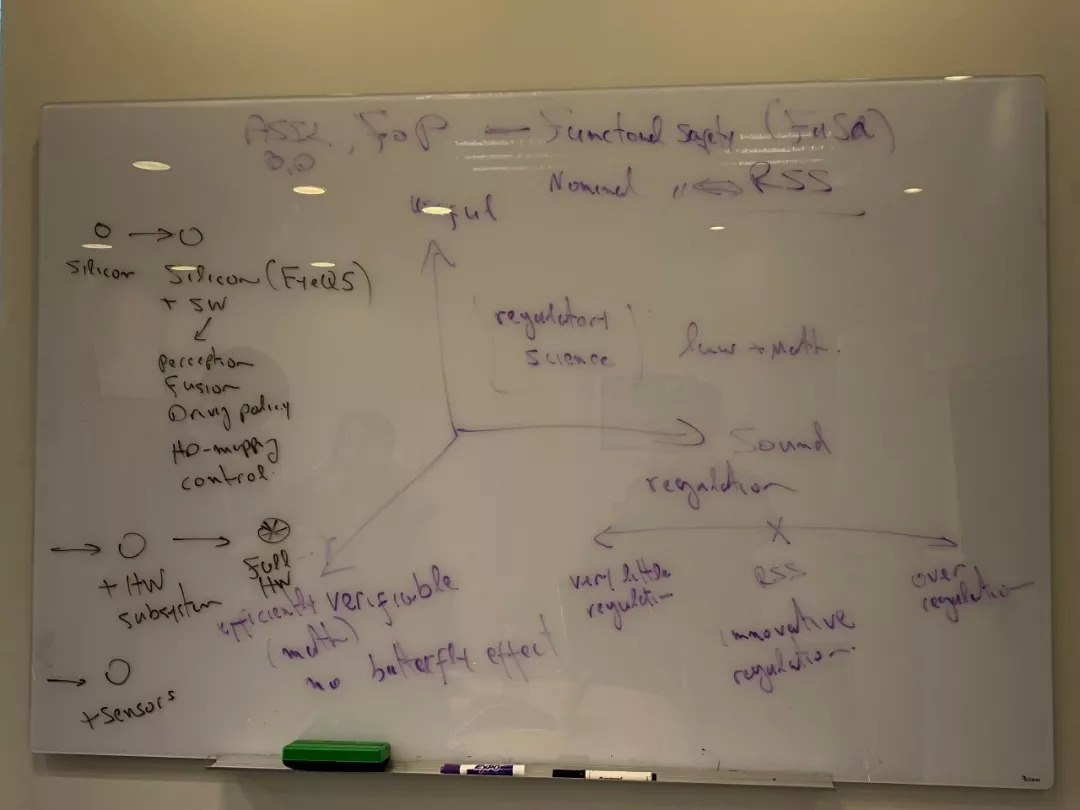 ASIL, FoP — Functional Safety (FuSa)
Nominal " ⟷ RSS
Useful
Silicon
Silicon (EyeQ5)
+ SW
perception
Fusion
Driving policy
HD-mapping
control.
regulatory
science
law + Math.
Sound
regulation
+ HW
subsystem
Full
HW
efficiently verifiable
(math)
no butterfly effect
very little
regulation
X
RSS
innovative
regulation.
over
regulation
+ Sensors
EXPO